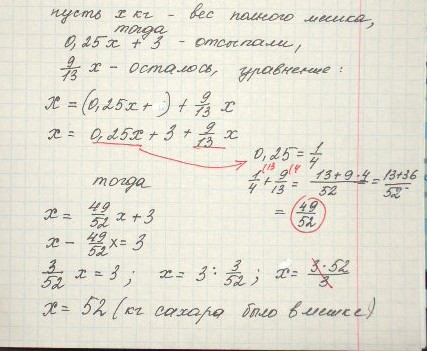 пусть x кг - вес полного мешка,
тогда
0,25x + 3 - отсыпали,
9/13 x - осталось, уравнение:
x = (0,25x + ) + 9/13 x
x = 0,25x + 3 + 9/13 x
0,25 = 1/4
1/4 (13 + 9/13 (4 = 13+9·4/52 = 13+36/52
= 49/52
тогда
x = 49/52 x + 3
x - 49/52 x = 3
3/52 x = 3; x = 3 : 3/52; x = 3·52/3
x = 52 (кг сахара было в мешке)